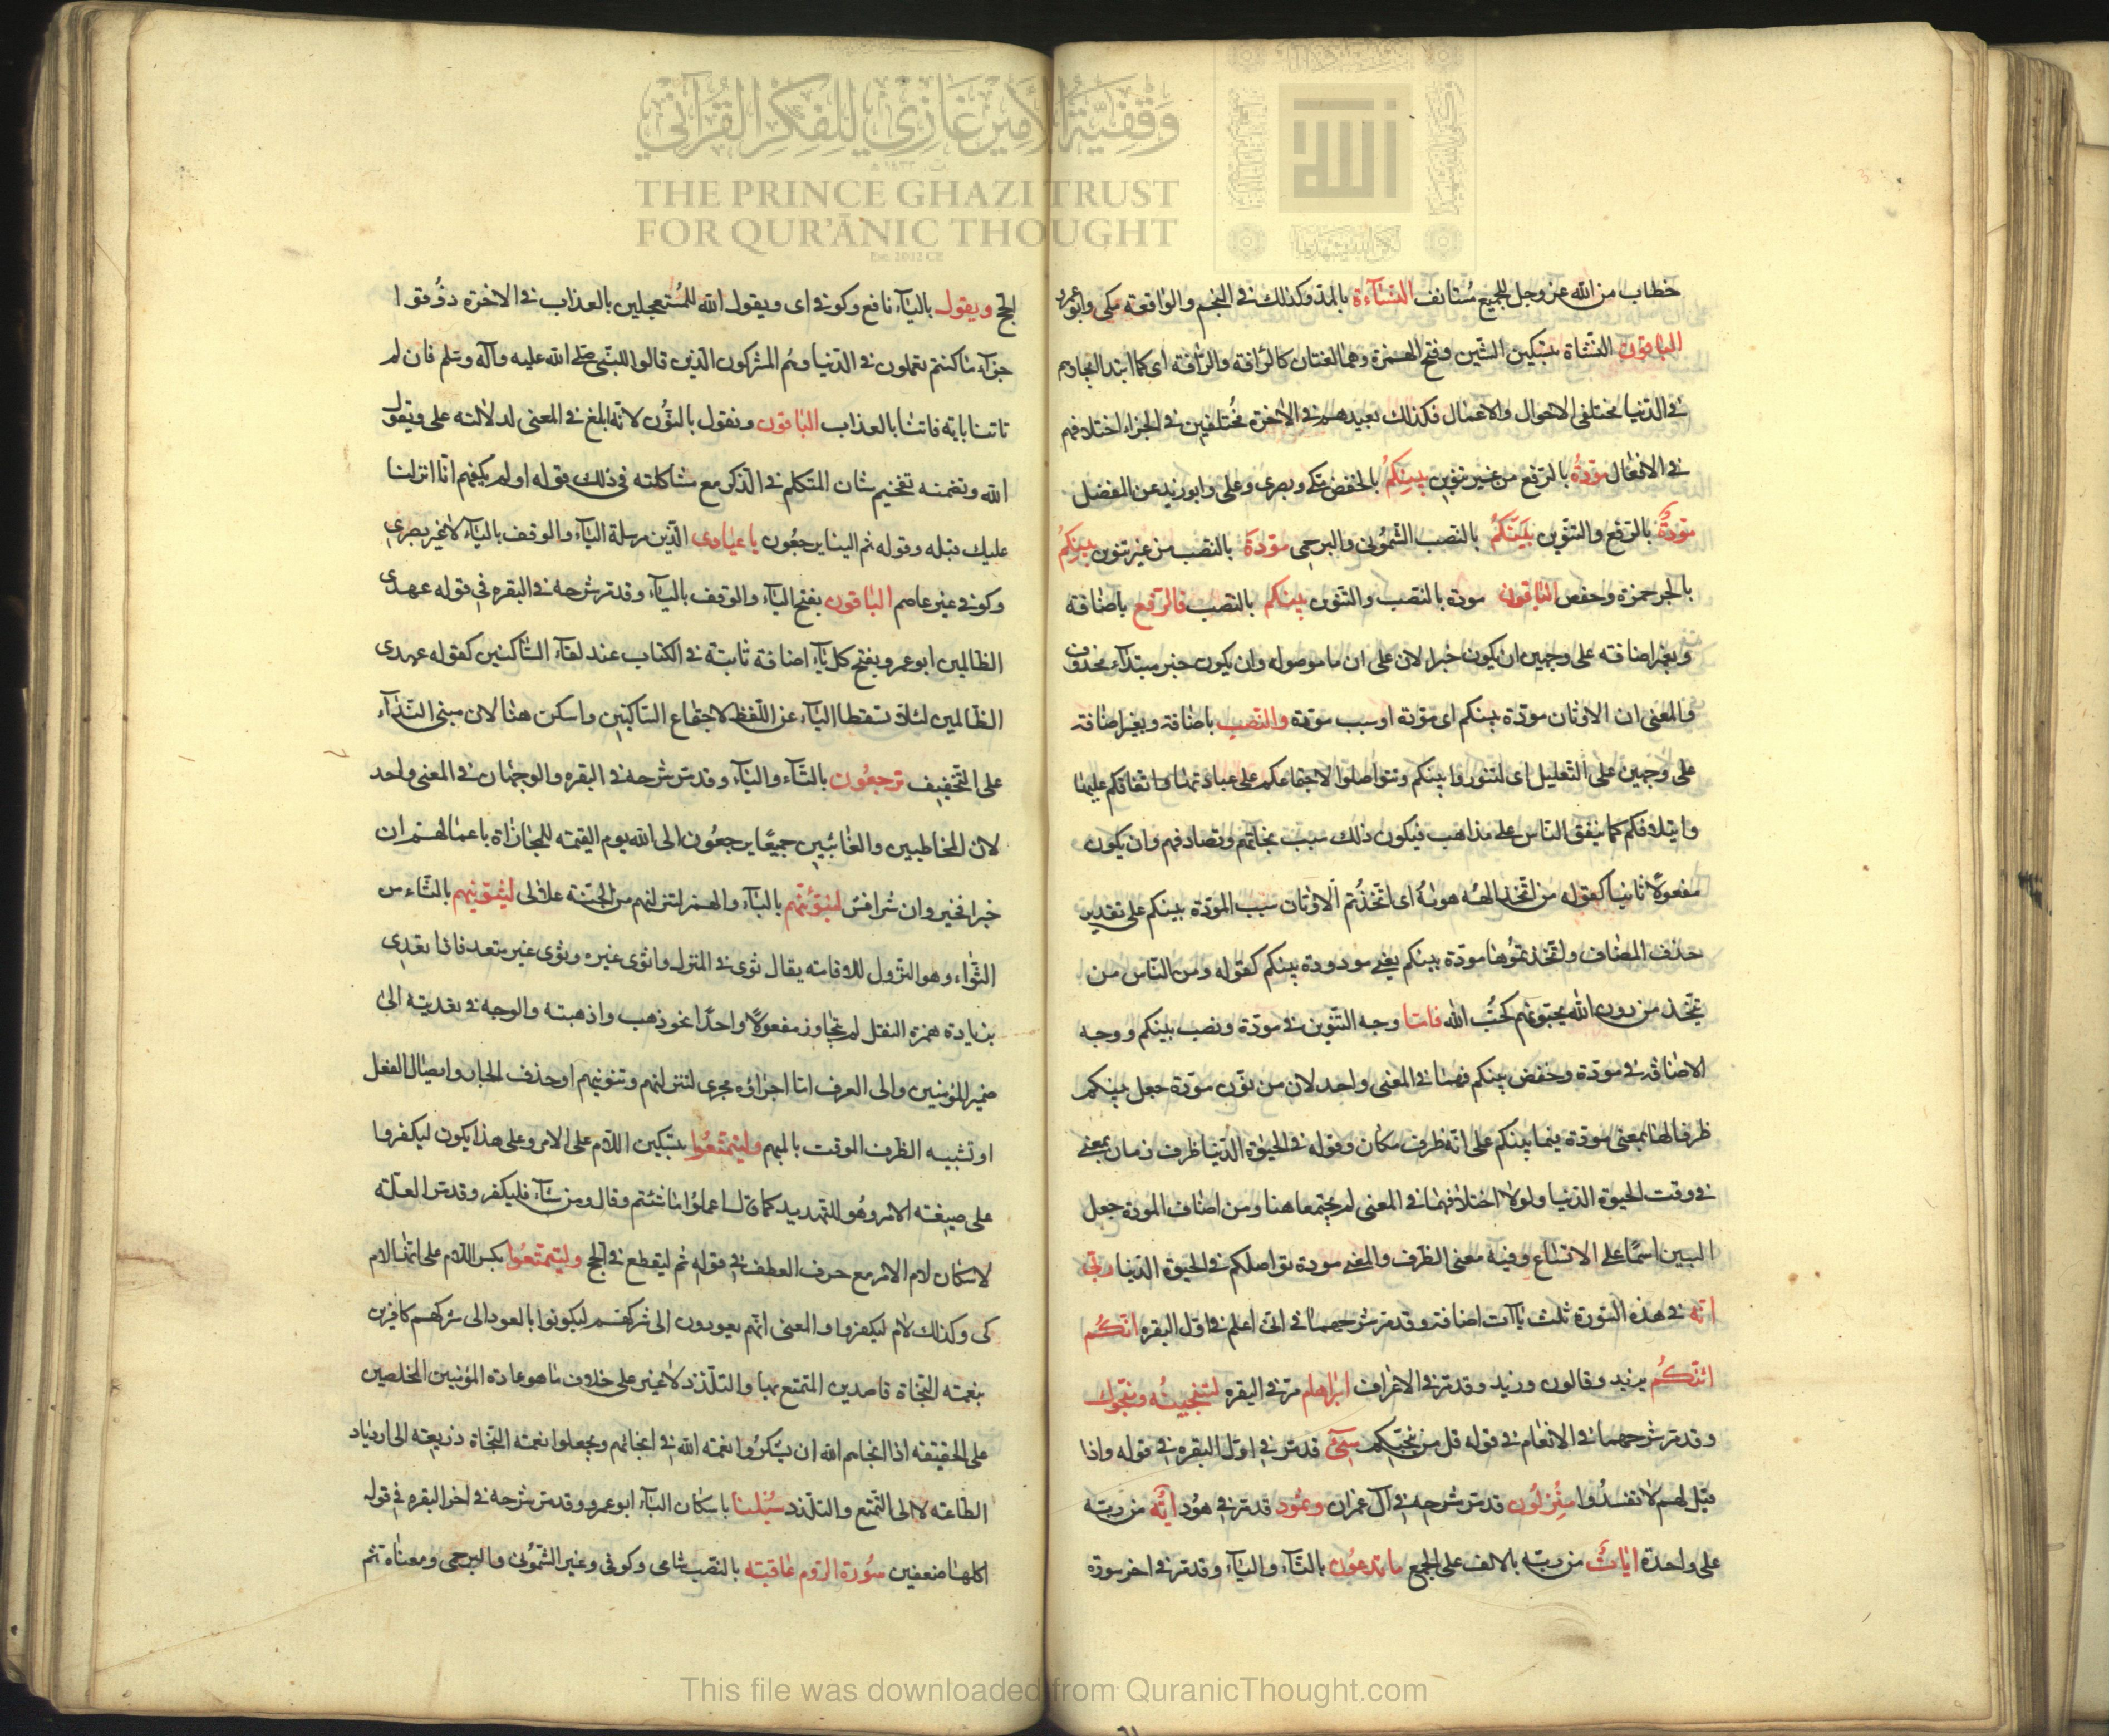 وقفية الأمير غازي للفكر القرآني
THE PRINCE GHAZI TRUST
FOR QUR'ĀNIC THOUGHT
Est. 2012 CE
خطاب من الله عز وجل للجميع مستانف النشآءة بالمد وكذلك في النجم والواقعة مكي وابو عمرو
الباقون النشاة بتسكين الشين وفتح الهمزة وهما لغتان كالرافة والرآفة اى كما ابتد ايجادهم
في الدنيا مختلفي الاحوال والاعمال فكذلك يعيدهم في الاخرة مختلفين في الجزاء اختلافهم
في الافعال مودة بالرفع من غير تنوين بينكم بالخفض مكي وبصرى وعلى وابو زيد عن المفضل
مودة بالرفع والتنوين بينكم بالنصب الشموني والبرجمي مودة بالنصب من غير تنوين بينكم
بالجر حمزة وحفص الباقون مودة بالنصب والتنوين بينكم بالنصب فالرفع باضافة
وبغير اضافة على وجهين ان يكون خبرا لان على ان ما موصولة وان يكون خبر مبتداء محذوف
والمعنى ان الاوثان مودة بينكم اى مودة او سبب مودة والنصب باضافة وبغير اضافة
على وجهين على التعليل اى لتتوروا بينكم وتتواصلوا لاجتماعكم على عبادتها واتفاقكم عليها
وايتلافكم كما يتفق الناس على مذاهب فيكون ذلك سبب تحابهم وتصادقهم وان يكون
مفعولا ثانيا كقوله من اتخذ الهه هويه اى اتخذتم الاوثان سبب المودة بينكم على تقدير
حذف المضاف واتخذتموها مودة بينكم بمعنى مودودة بينكم كقوله ومن الناس من
يتخذ من دون الله يحبونهم كحب الله فاما وجه التنوين في مودة ونصب بينكم ووجه
الاضافة في مودة وخفض بينكم فهما في المعنى واحد لان من نون مودة جعل بينكم
ظرفا لها بمعنى مودة بينما بينكم على انه ظرف مكان وقوله في الحيوة الدنيا ظرف زمان بمعنى
في وقت الحيوة الدنيا ولولا اختلافهما في المعنى لم يجتمعا هنا ومن اضاف المودة جعل
البين اسما على الاتساع وفيه معنى الظرف والمعنى مودة تواصلكم في الحيوة الدنيا ربي
انه في هذه السورة ثلث ياآت اضافة وقد مر شرحهما في انى اعلم في اول البقره ائنكم
ائنكم يزيد وقالون وزيد وقد مر في الاعراف ابراهام مر في البقره لننجينه ومنجوك
وقد مر شرحهما في الانعام في قوله قل من ينجيكم سيئ قد مر في اول البقره في قوله واذا
قيل لهم لا تفسدوا منزلون قد مر شرحه في آل عمران وثمود قد مر في هود آية من ربه
على واحدة ايات من ربه بالالف على الجمع ما تدعون بالتآء واليآء وقد مر في اخر سورة
الحج ويقول باليآء نافع وكوفي اى ويقول الله للمستعجلين بالعذاب في الاخرة ذوقوا
جزآء ما كنتم تعملون في الدنيا وهم المشركون الذين قالوا للنبي صلى الله عليه وآله وسلم فان لم
تاتنا باية فاتنا بالعذاب الباقون ونقول بالنون لانه ابلغ في المعنى لدلالته على ويقول
الله وتضمنه تفخيم شان المتكلم في الذكر مع مشاكلته في ذلك قوله اولم يكفهم انا انزلنا
عليك قبله وقوله ثم الينا يرجعون يا عبادى الذين مرسلة اليآء والوقف باليآء لا غير بصرى
وكوفي غير عاصم الباقون بفتح اليآء والوقف باليآء وقد مر شرحه في البقره في قوله عهدى
الظالمين ابو عمرو يفتح كل يآء اضافة ثابتة في الكتاب عند لقآء الساكنين كقوله عهدى
الظالمين لئلا تسقط اليآء عن اللفظ لاجتماع الساكنين واسكن هنا لان مبنى الندآء
على التخفيف ترجعون بالتآء واليآء وقد مر شرحه في البقره والوجهان في المعنى واحد
لان المخاطبين والغائبين جميعا يرجعون الى الله يوم القيمة للمجازاة باعمالهم ان
خيرا فخير وان شرا فشر لنبوئنهم بالبآء والهمز لننزلنهم من الجنة علالى لنثوينهم بالثآء من
الثواء وهو النزول للاقامة يقال ثوى في المنزل واثوى غيره وثوى غير متعد فاذا تعدى
بزيادة همزة النقل لم يتجاوز مفعولا واحدا نحو ذهب واذهبته والوجه في تعديته الى
ضمير المؤمنين والى الغرف اما اجزاؤه مجرى لننزلنهم ونبوئنهم او حذف الجار وايصال الفعل
او تشبيه الظرف الموقت بالمبهم وليتمتعوا بتسكين اللام على الامر وعلى هذا يكون ليكفروا
على صيغة الامر وهو للتهديد كما قال اعملوا ما شئتم وقال ومن شآء فليكفر وقد مر العلة
لاسكان لام الامر مع حرف العطف في قوله ثم ليقطع في الحج وليتمتعوا بكسر اللام على انها لام
كي وكذلك لام ليكفروا والمعنى انهم يعودون الى شركهم ليكونوا بالعود الى شركهم كافرين
بنعمة النجاة قاصدين التمتع بها والتلذذ لا غير على خلاف ما هو عادة المؤمنين المخلصين
على الحقيقة اذا انجاهم الله ان يشكروا نعمة الله في انجائهم ويجعلوا نعمة النجاة ذريعة الى ازدياد
الطاعة لا الى التمتع والتلذذ سبلنا باسكان البآء ابو عمرو وقد مر شرحه في اخر البقره في قوله
اكلها ضعفين سورة الروم عاقبة بالنصب شامى وكوفي وغير الشموني والبرجمي ومعناه ثم
This file was downloaded from QuranicThought.com